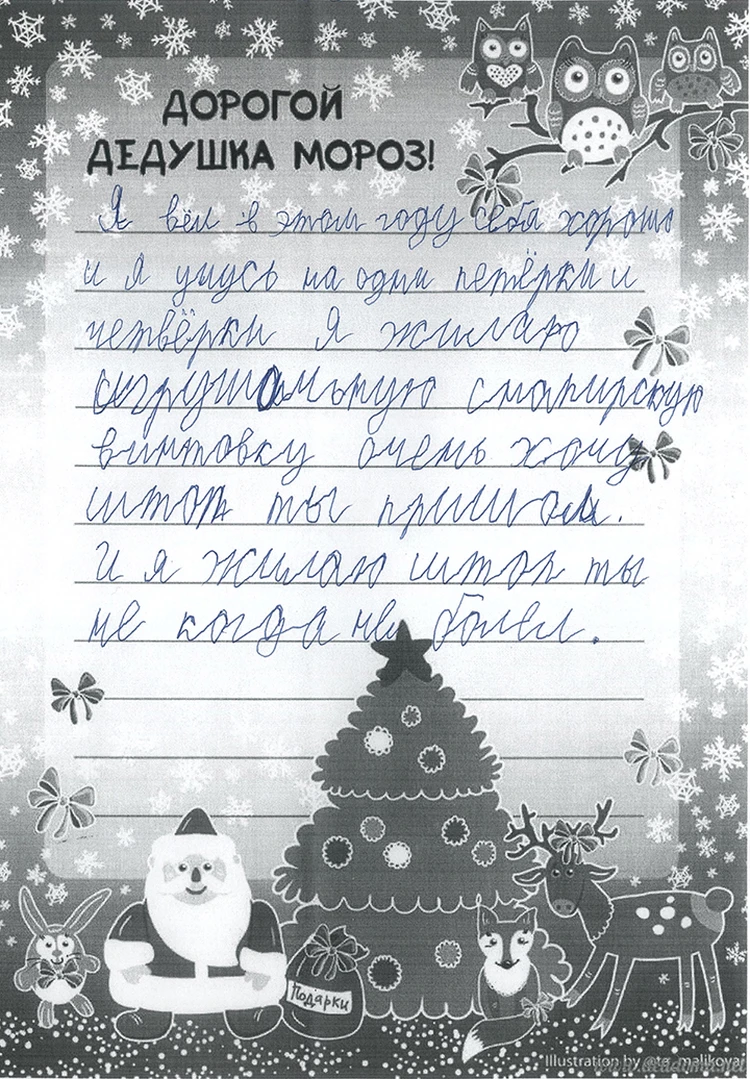 ДОРОГОЙ
ДЕДУШКА МОРОЗ!
Я вёл в этом году себя хорошо
и я учусь на одни петёрки и
четвёрки Я жилаю
огрушальную снапирскую
винтовку очень хочу
штоп ты пришол.
И я жилаю штоп ты
не когда не болел.
Подарки
Illustration by @te_malikova